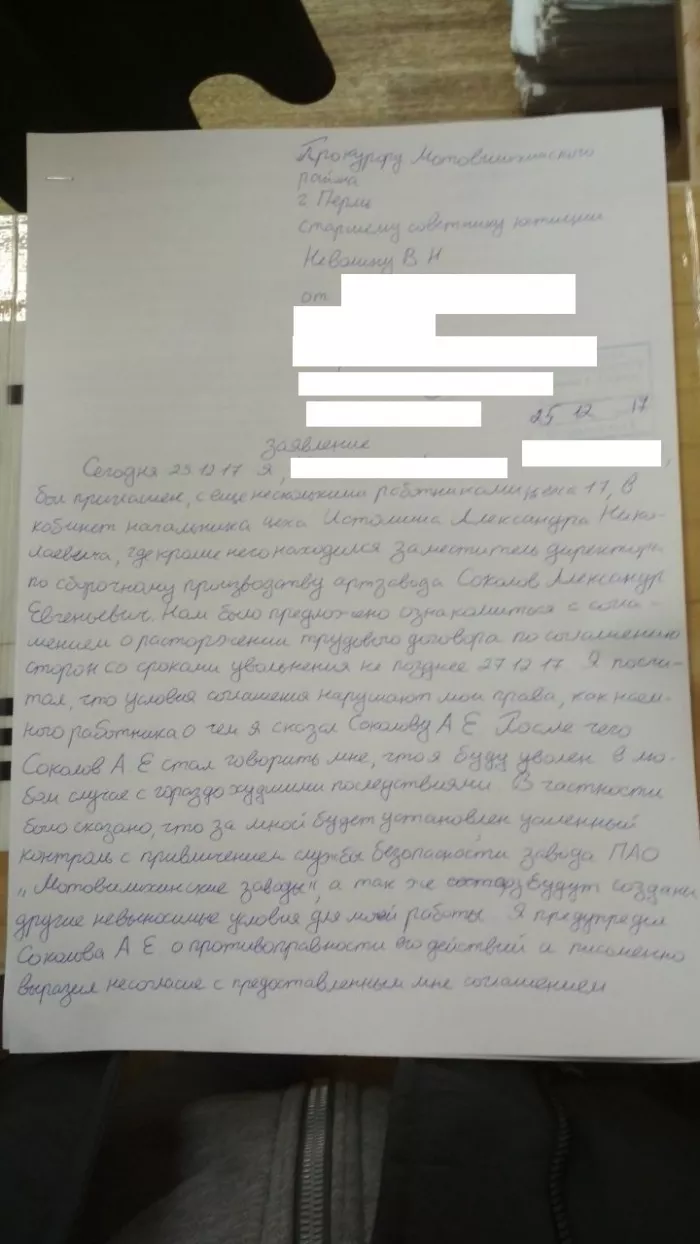 Прокурору Мотовилихинского
района
г. Пермь
старшему советнику юстиции
Неволину В Н
от
25 12 17
заявление
Сегодня 25 12 17 Я,
был приглашен, с еще несколькими работниками цеха 17, в
кабинет начальника цеха Истомина Александра Нико-
лаевича, где кроме него находился заместитель директора
по сборочному производству артзавода Соколов Александр
Евгеньевич. Нам было предложено ознакомиться с согла-
шением о расторжении трудового договора по соглашению
сторон со сроками увольнения не позднее 27 12 17 Я посчи-
тал, что условия соглашения нарушают мои права, как наем-
ного работника о чем я сказал Соколову А Е После чего
Соколов А Е стал говорить мне, что я буду уволен в лю-
бом случае с гораздо худшими последствиями В частности
было сказано, что за мной будет установлен усиленный
контроль с привличением службы безопасности завода ПАО
„Мотовилихинские заводы", а так же будут созданы
другие невыносимые условия для моей работы Я предупредил
Соколова А Е о противоправности его действий и письменно
выразил несогласие с предоставленным мне соглашением